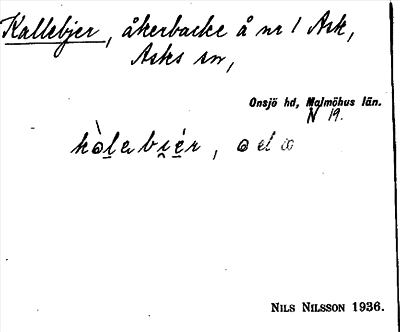 Kallebjer, åkerbacke å nr 1 Ask,
Asks sn,
Onsjö hd, Malmöhus län.
N 19.
kòlebi̯ér, o el
NILS NILSSON 1936.